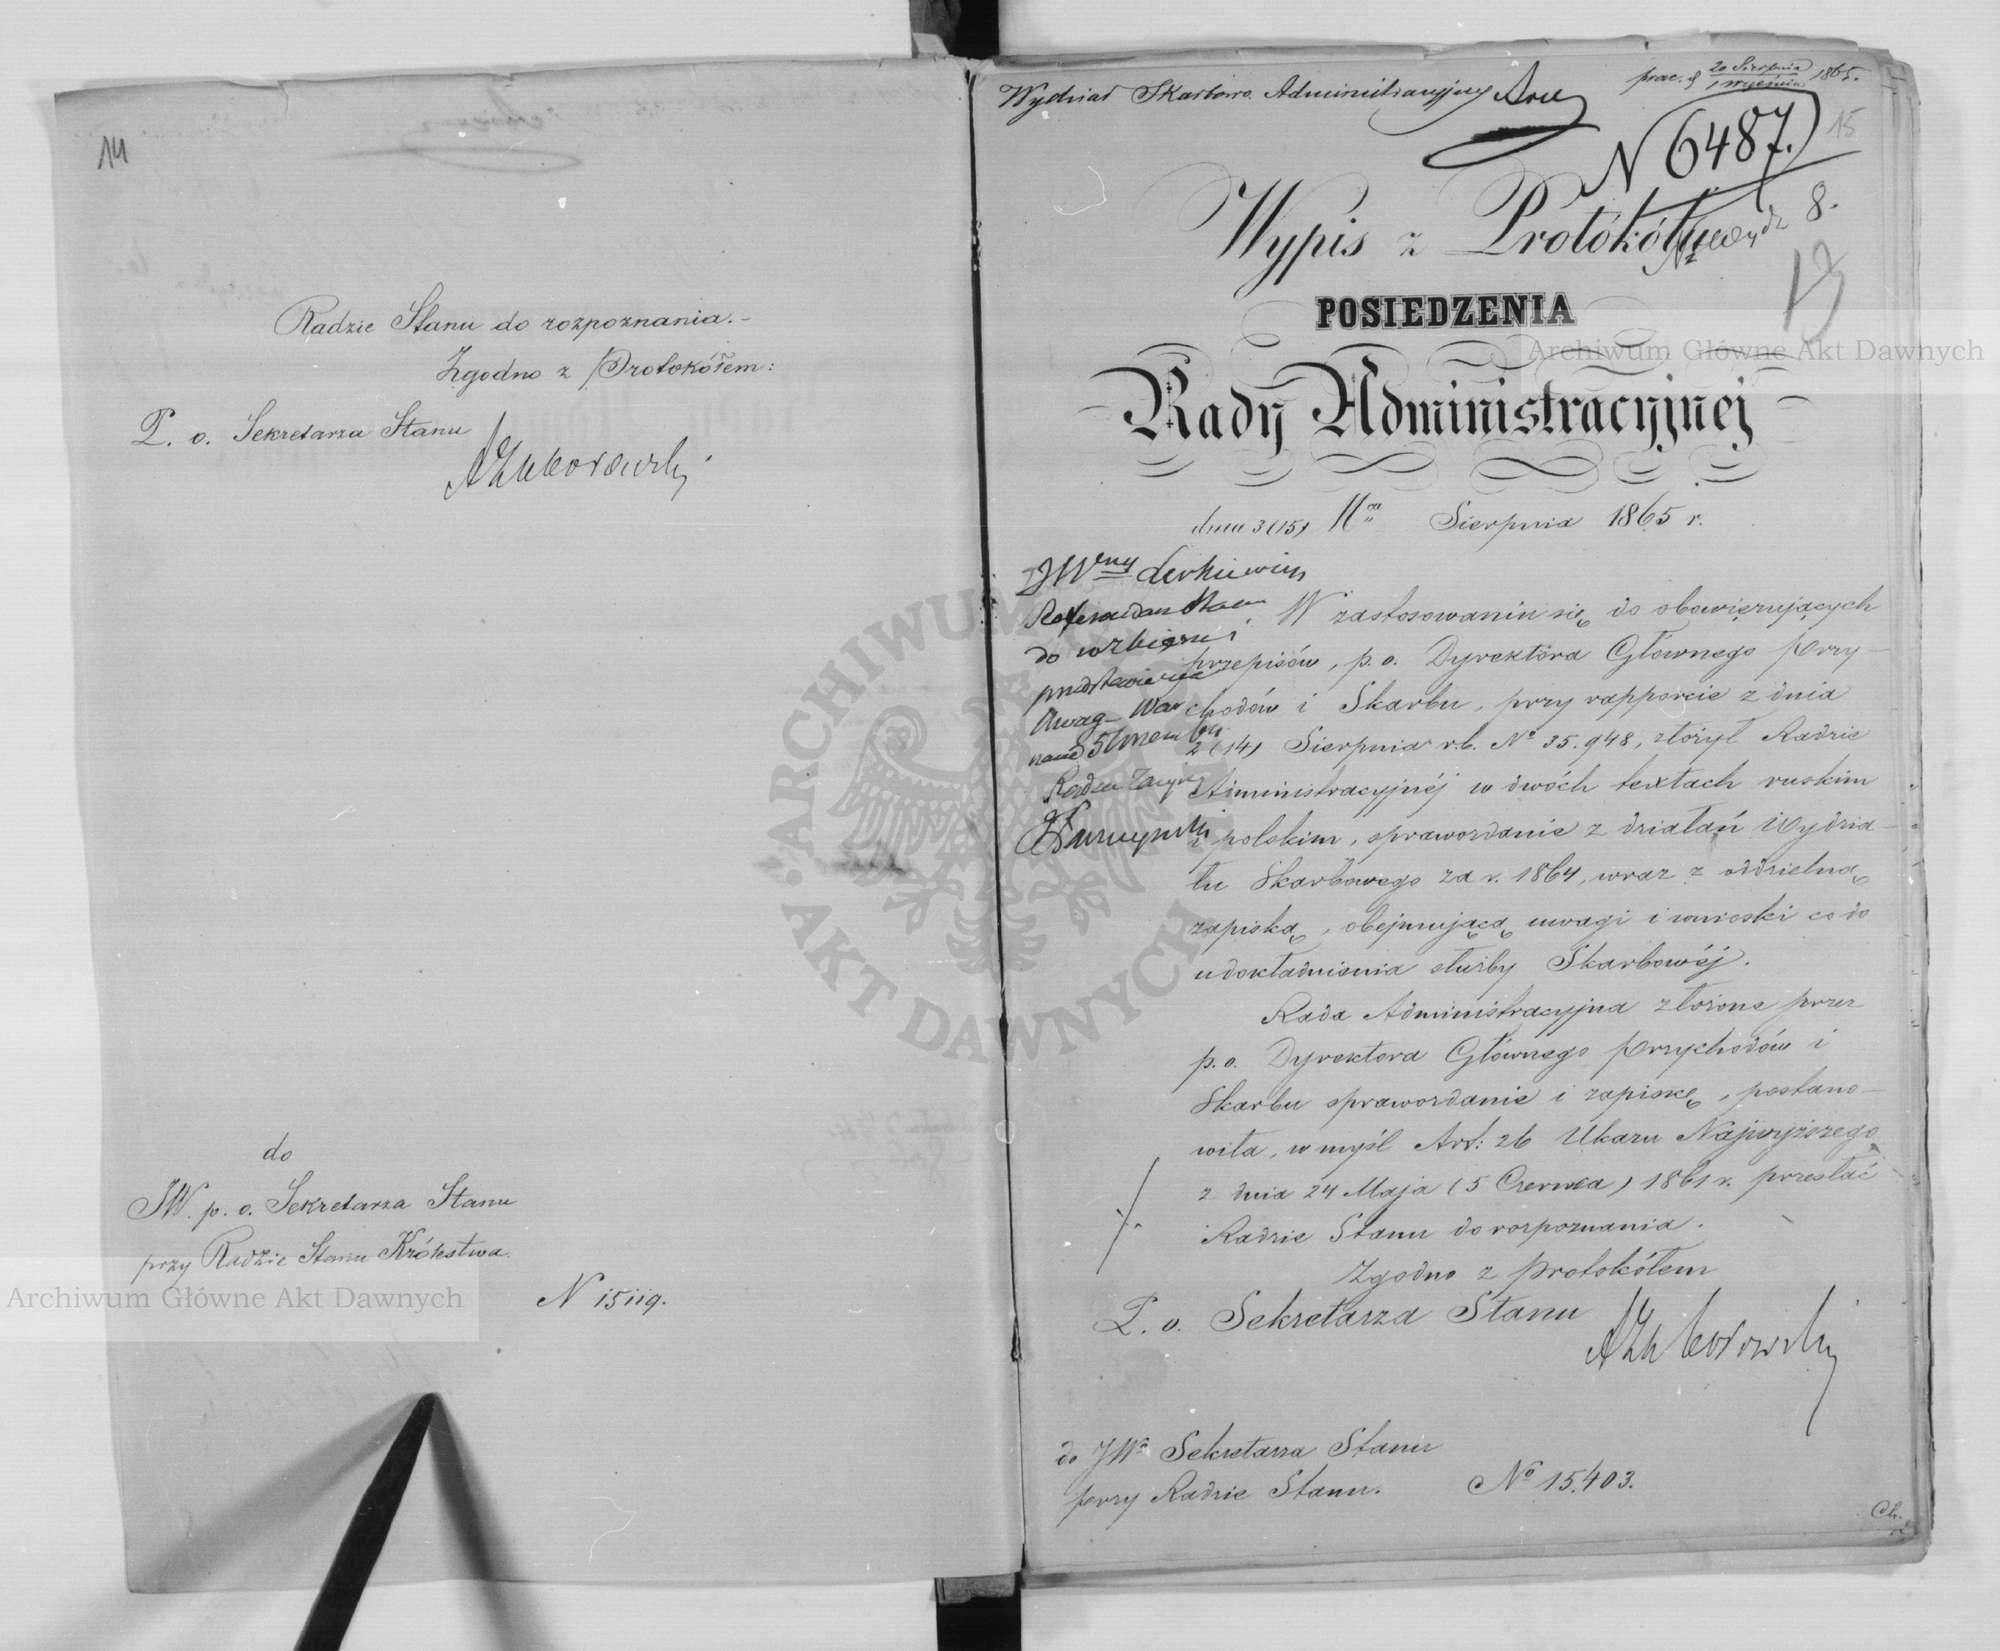 14
Radzie Stanu do rozpoznania.-
Zgodno z Protokółem:
P. o. Sekretarza Stanu
AZaborowski
do
JW. p. o. Sekretarza Stanu
przy Radzie Stanu Królestwa.
N 15119.
Wydział Skarbowo Administracyjny
20 Sierpnia
1 Września 1865.
N 6487.
15
8.
Wypis z Protokółu
POSIEDZENIA
Rady Administracyjnej
dnia 3 (15) Sierpnia 1865 r.
W zastosowaniu się do obowięzujących
przepisów, p. o. Dyrektora Głównego Przy-
chodów i Skarbu, przy rapporcie z dnia
2 (14) Sierpnia r.b. No 35.948, złożył Radzie
Administracyjnéj w dwóch textach ruskim
i polskim, sprawozdanie z działań Wydzia-
łu Skarbowego za r. 1864, wraz z oddzielną
zapiską, obejmującą uwagi i wnioski co do
udokładnienia służby Skarbowéj.
Rada Administracyjna złożone przez
p. o. Dyrektora Głównego Przychodów i
Skarbu sprawozdanie i zapiskę, postano-
wiła, w myśl Art: 26 Ukazu Najwyższego
z dnia 24 Maja (5 Czerwca) 1861 r. przesłać
Radzie Stanu do rozpoznania.
Zgodno z Protokółem
P. o. Sekretarza Stanu
AZaborowski
do JWo Sekretarza Stanu
przy Radzie Stanu.
No 15.403.
Ch.
Archiwum Główne Akt Dawnych
Archiwum Główne Akt Dawnych
ARCHIWUM
AKT DAWNYCH